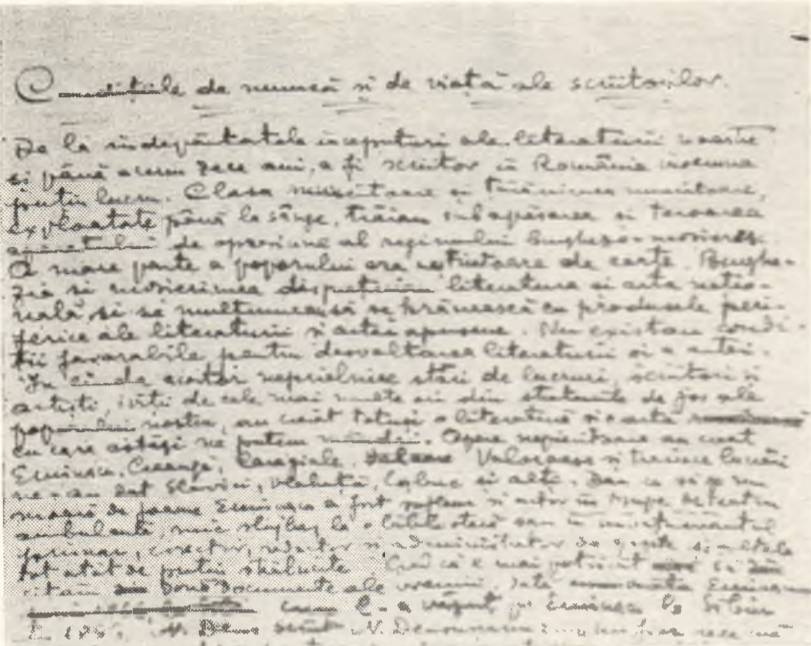 Condițiile de muncă și de viață ale scriitorilor.
De la îndepărtatele începuturi ale literaturii noastre
și până acum zece ani, a fi scriitor în România însemna
puțin lucru. Clasa muncitoare și țărănimea muncitoare,
exploatate până la sânge, trăiau sub apăsarea și teroarea
aparatului de opresiune al regimului burghezo-moșieresc.
O mare parte a poporului era neștiutoare de carte. Burghe-
zia și moșierimea disprețuiau literatura și arta națio-
nală, și se mulțumeau să se hrănească cu produsele peri-
ferice ale literaturii și artei apusene. Nu existau condi-
ții favorabile pentru desvoltarea literaturii și a artei.
În ciuda acestor neprielnice stări de lucruri, scriitori și
artiști, ieșiți de cele mai multe ori din straturile de jos ale
poporului nostru, au creat totuși o literatură și o artă
cu care astăzi ne putem mândri. Opere nepieritoare au creat
Eminescu, Creangă, Caragiale. Valoroase și trainice lucrări
ne-au dat Slavici, Vlahuță, Coșbuc și alții. Dar ca să nu
moară de foame Eminescu a fost sufleur și actor în trupe de teatru
ambulante, mic slujbaș la o bibliotecă
corector, redactor și administrator de
tot atât de puțin strălucite. Cred că e mai potrivit să
cităm două documente ale vremii. Iată Eminescu
cum l-a văzut pe Eminescu
N. Densușianu